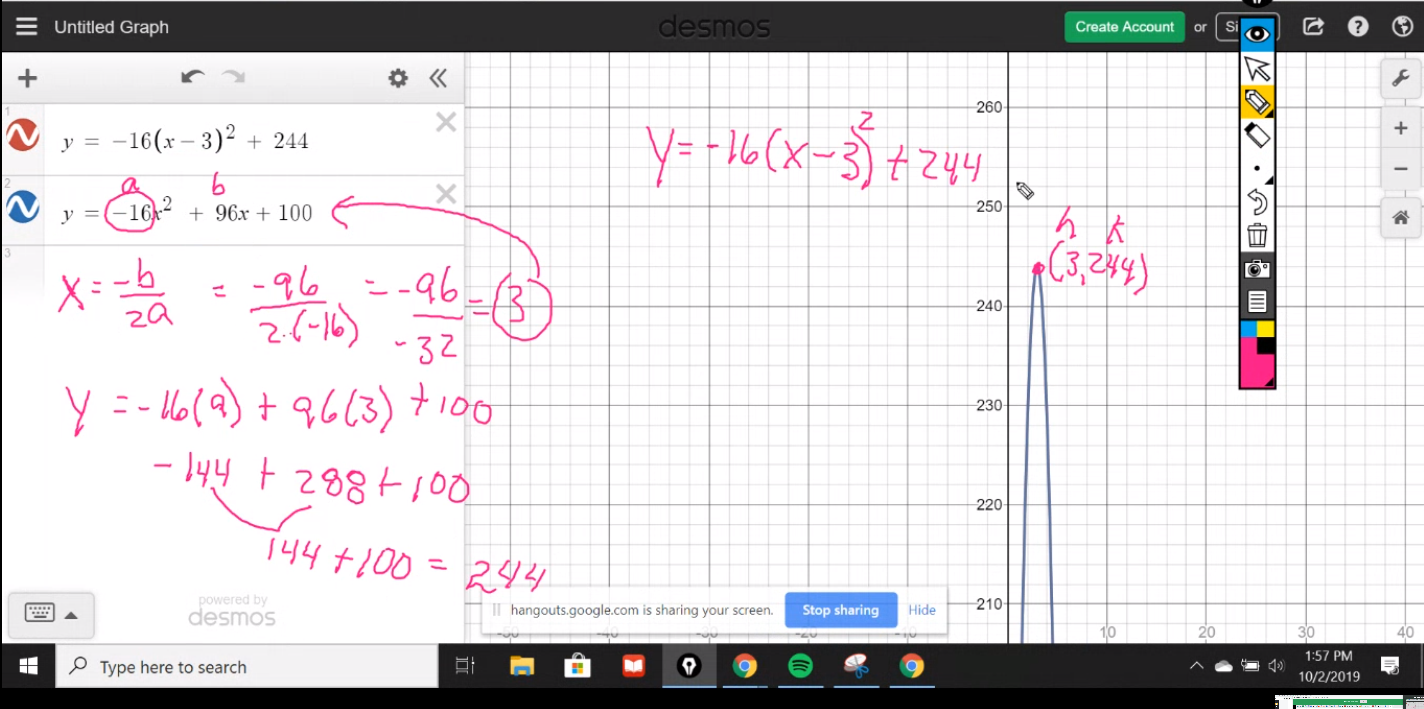 Untitled Graph
desmos
Create Account or Si
1
y = −16(x − 3)² + 244
a b
2
y = −16x² + 96x + 100
3
x = -b/2a = -96/2·(-16) = -96/-32 = 3
y = -16(9) + 96(3) + 100
-144 + 288 + 100
144 + 100 = 244
y = -16(x-3)² + 244
h k
(3,244)
260
250
240
230
220
210
-50 -40 -30 -20 -10 10 20 30 40
powered by
desmos
hangouts.google.com is sharing your screen. Stop sharing Hide
Type here to search
1:57 PM
10/2/2019